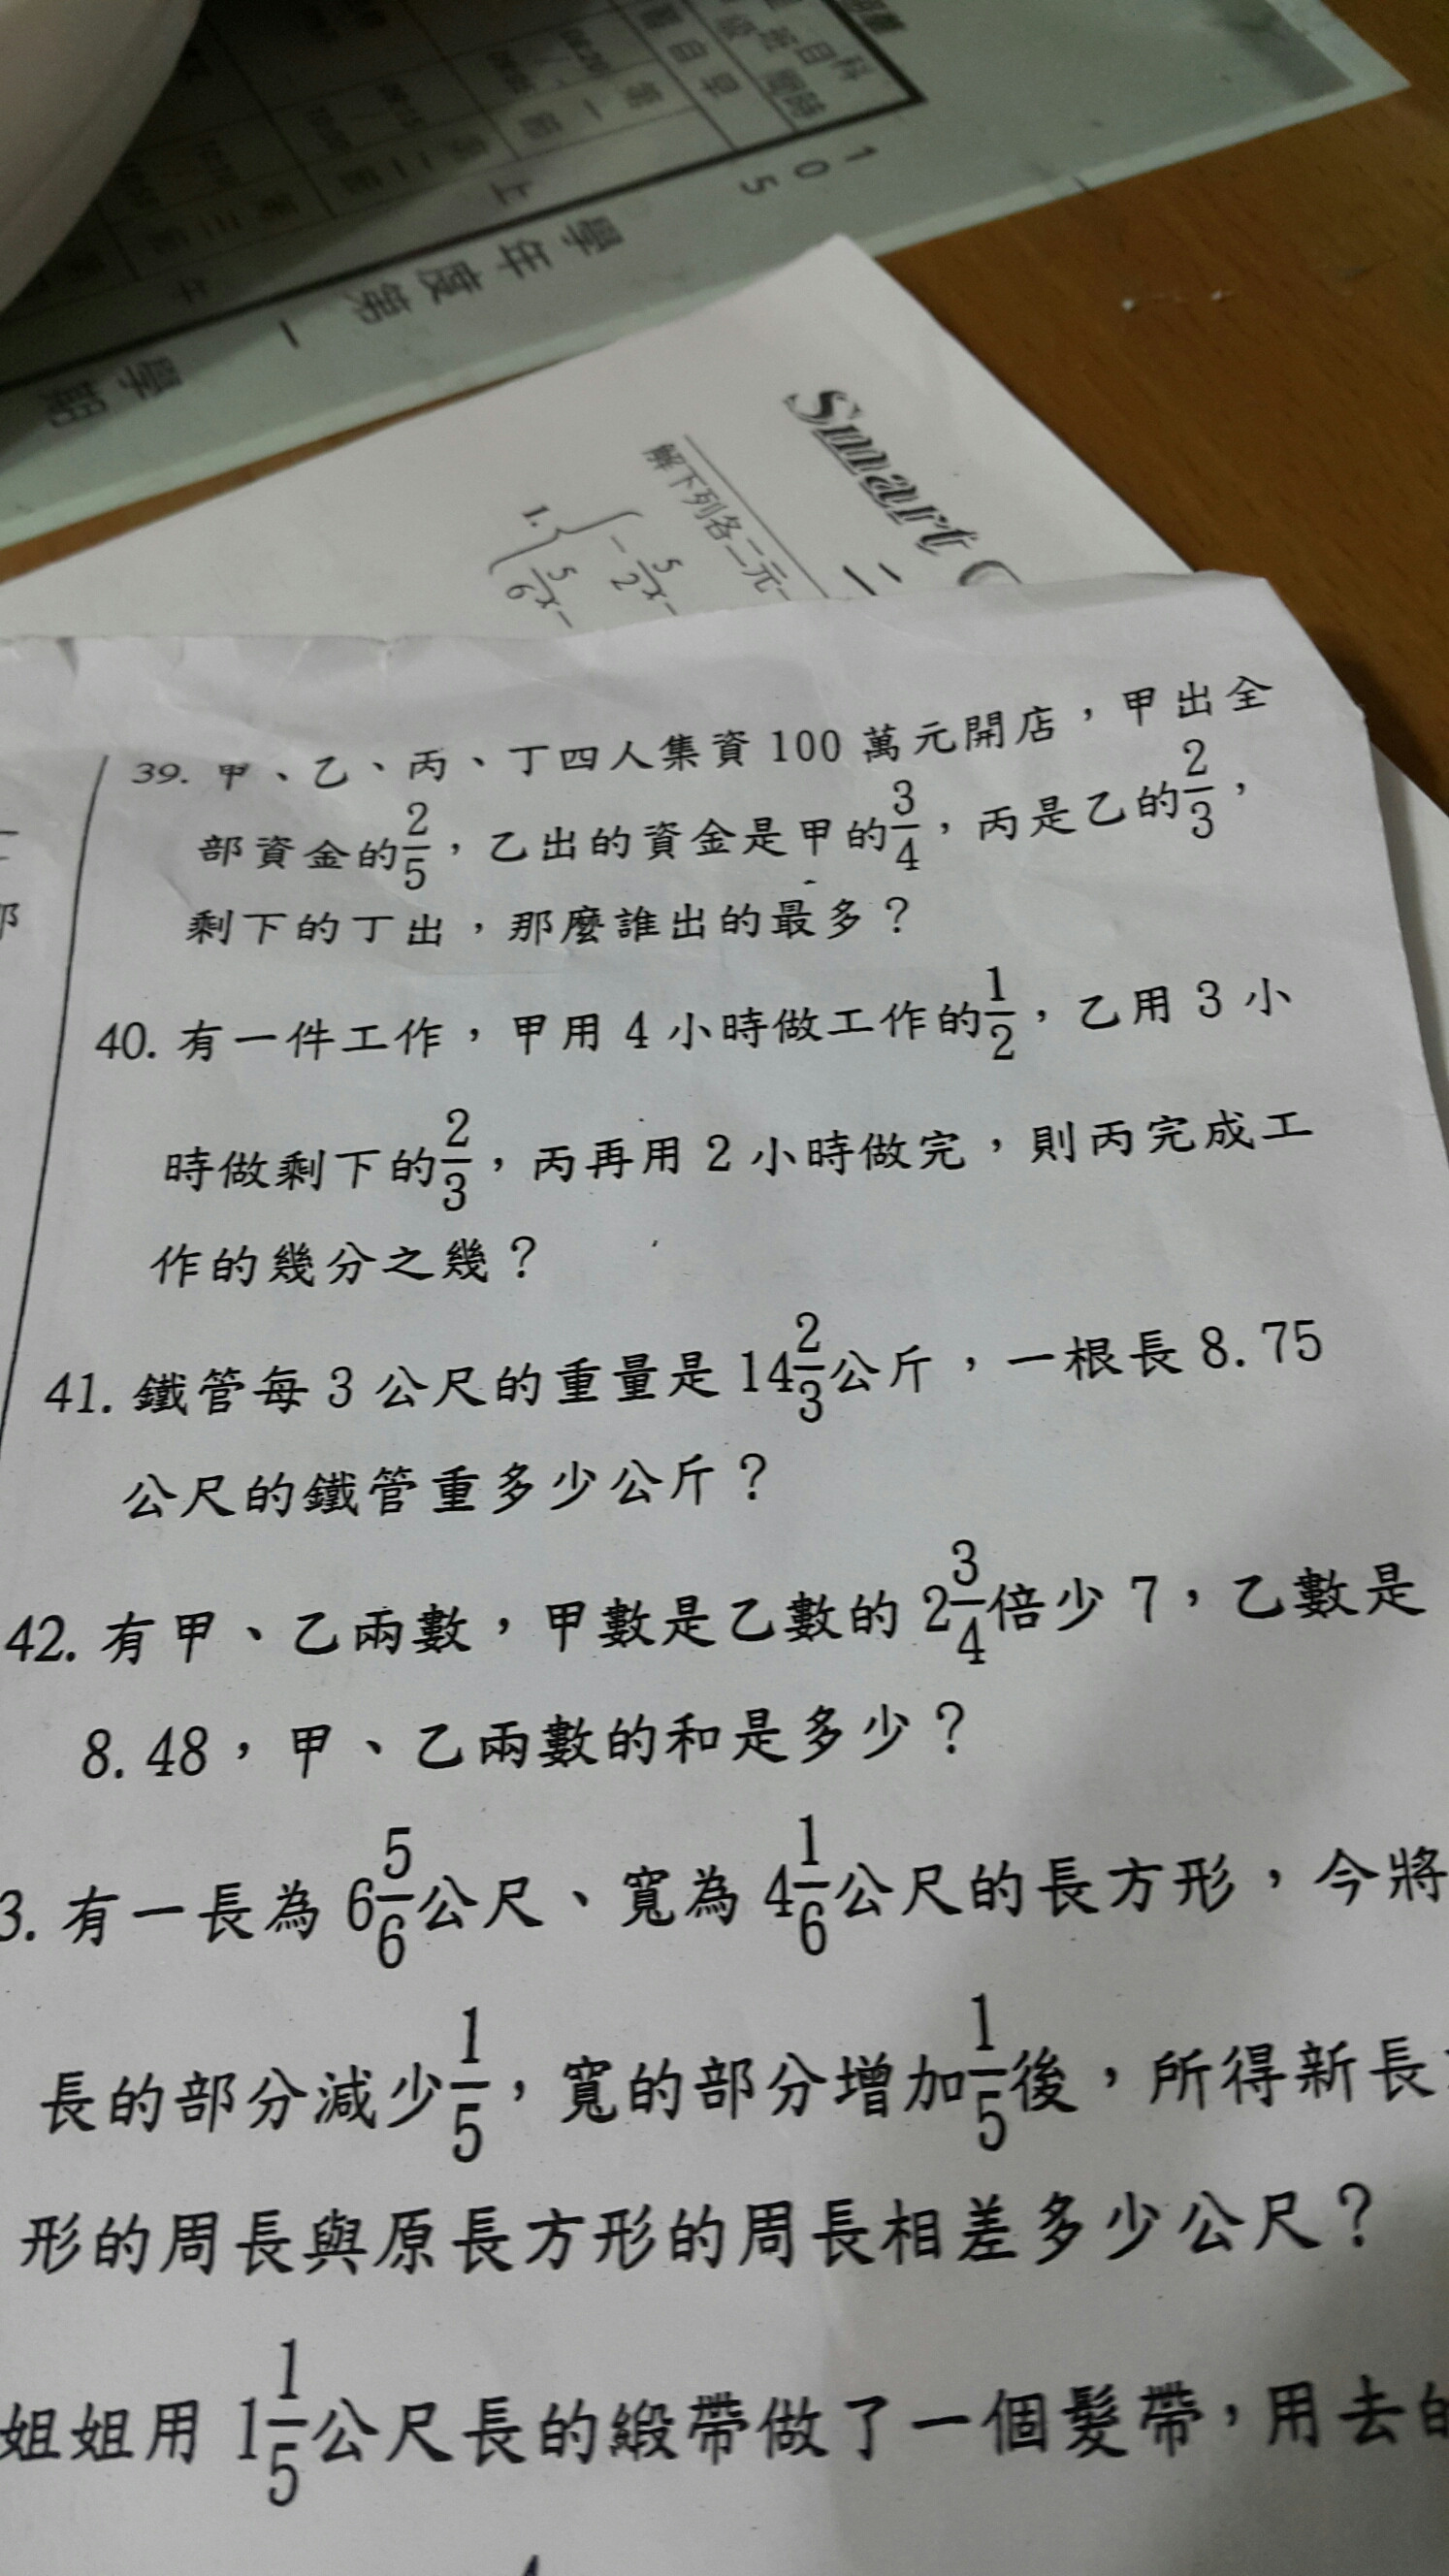 105
學年度第一學期
第一節
Smart
解下列各二元一
1. { -5/2x-
5/6x-
39. 甲、乙、丙、丁四人集資 100 萬元開店，甲出全
部資金的2/5，乙出的資金是甲的3/4，丙是乙的2/3，
剩下的丁出，那麼誰出的最多？
40. 有一件工作，甲用 4 小時做工作的1/2，乙用 3 小
時做剩下的2/3，丙再用 2 小時做完，則丙完成工
作的幾分之幾？
41. 鐵管每 3 公尺的重量是 14 2/3公斤，一根長 8.75
公尺的鐵管重多少公斤？
42. 有甲、乙兩數，甲數是乙數的 2 3/4倍少 7，乙數是
8.48，甲、乙兩數的和是多少？
3. 有一長為 6 5/6公尺、寬為 4 1/6公尺的長方形，今將
長的部分減少1/5，寬的部分增加1/5後，所得新長
形的周長與原長方形的周長相差多少公尺？
姐姐用 1 1/5公尺長的緞帶做了一個髮帶，用去的